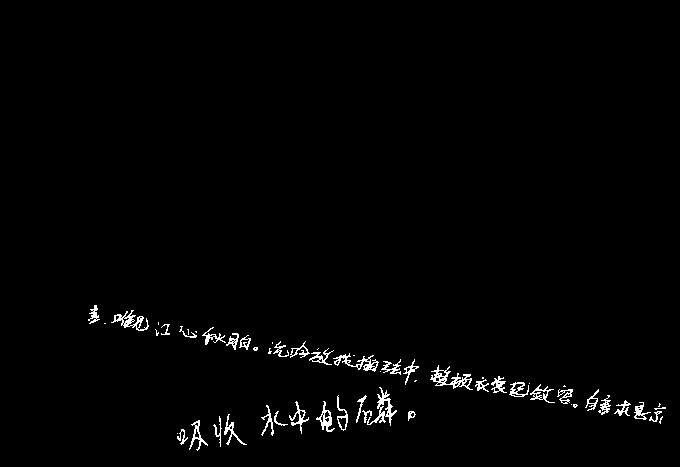 言,唯见江心秋月白。沉吟放拨插弦中,整顿衣裳起敛容。自言本是京
吸收水中的磷。